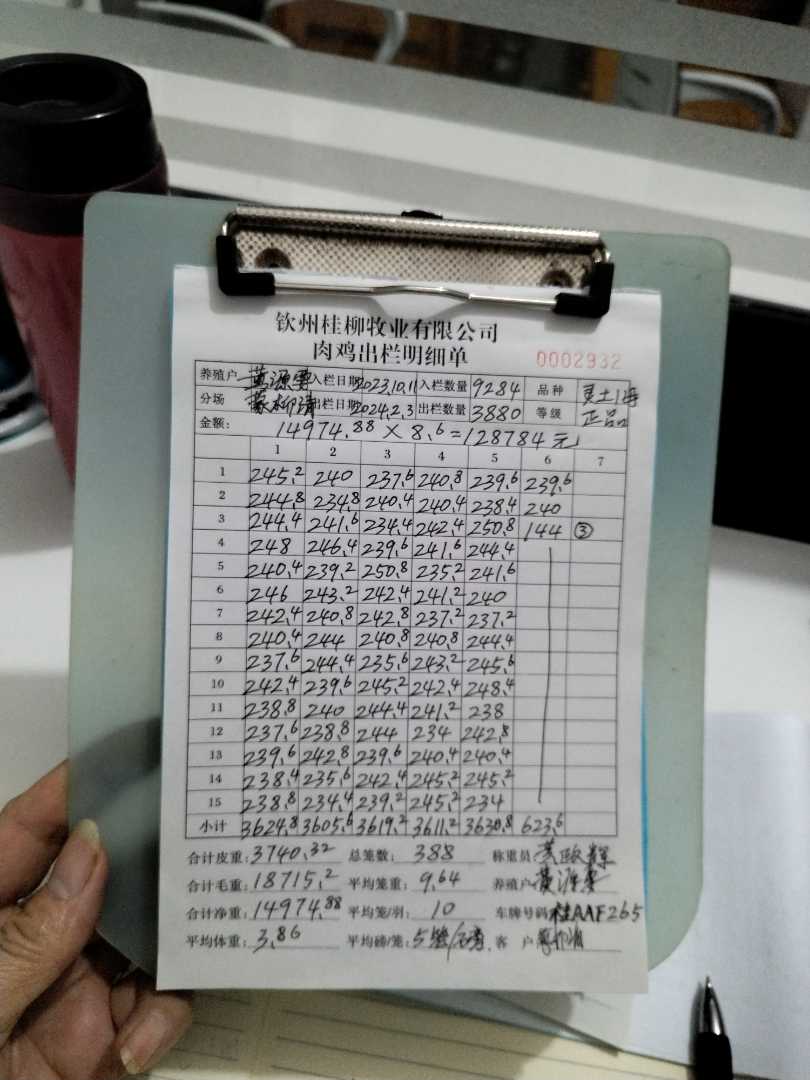 钦州桂柳牧业有限公司
肉鸡出栏明细单 0002932
养殖户 黄源雪 入栏日期 2023.10.11 入栏数量 9284 品种 灵土1号
分场 出栏日期 2024.2.3 出栏数量 3880 等级 正品
金额: 14974.88 × 8.6 = 128784元
1 2 3 4 5 6 7
1 245.2 240 237.6 240.8 239.6 239.6
2 244.8 234.8 240.4 240.4 238.4 240
3 244.4 241.6 234.4 242.4 250.8 144 ③
4 248 246.4 239.6 241.6 244.4
5 240.4 239.2 250.8 235.2 241.6
6 246 243.2 242.4 241.2 240
7 242.4 240.8 242.8 237.2 237.2
8 240.4 244 240.8 240.8 244.4
9 237.6 244.4 235.6 243.2 245.6
10 242.4 239.6 245.2 242.4 248.4
11 238.8 240 244.4 241.2 238
12 237.6 238.8 244 234 242.8
13 239.6 242.8 239.6 240.4 240.4
14 238.4 235.6 242.4 245.2 245.2
15 238.8 234.4 239.2 245.2 234
小计 3624.8 3605.6 3619.2 3611.2 3630.8 623.6
合计皮重: 3740.32 总笼数: 388 称重员
合计毛重: 18715.2 平均笼重: 9.64 养殖户
合计净重: 14974.88 平均笼/羽: 10 车牌号码 桂AAF265
平均体重: 3.86 平均磅/笼: 5笼/磅 客户